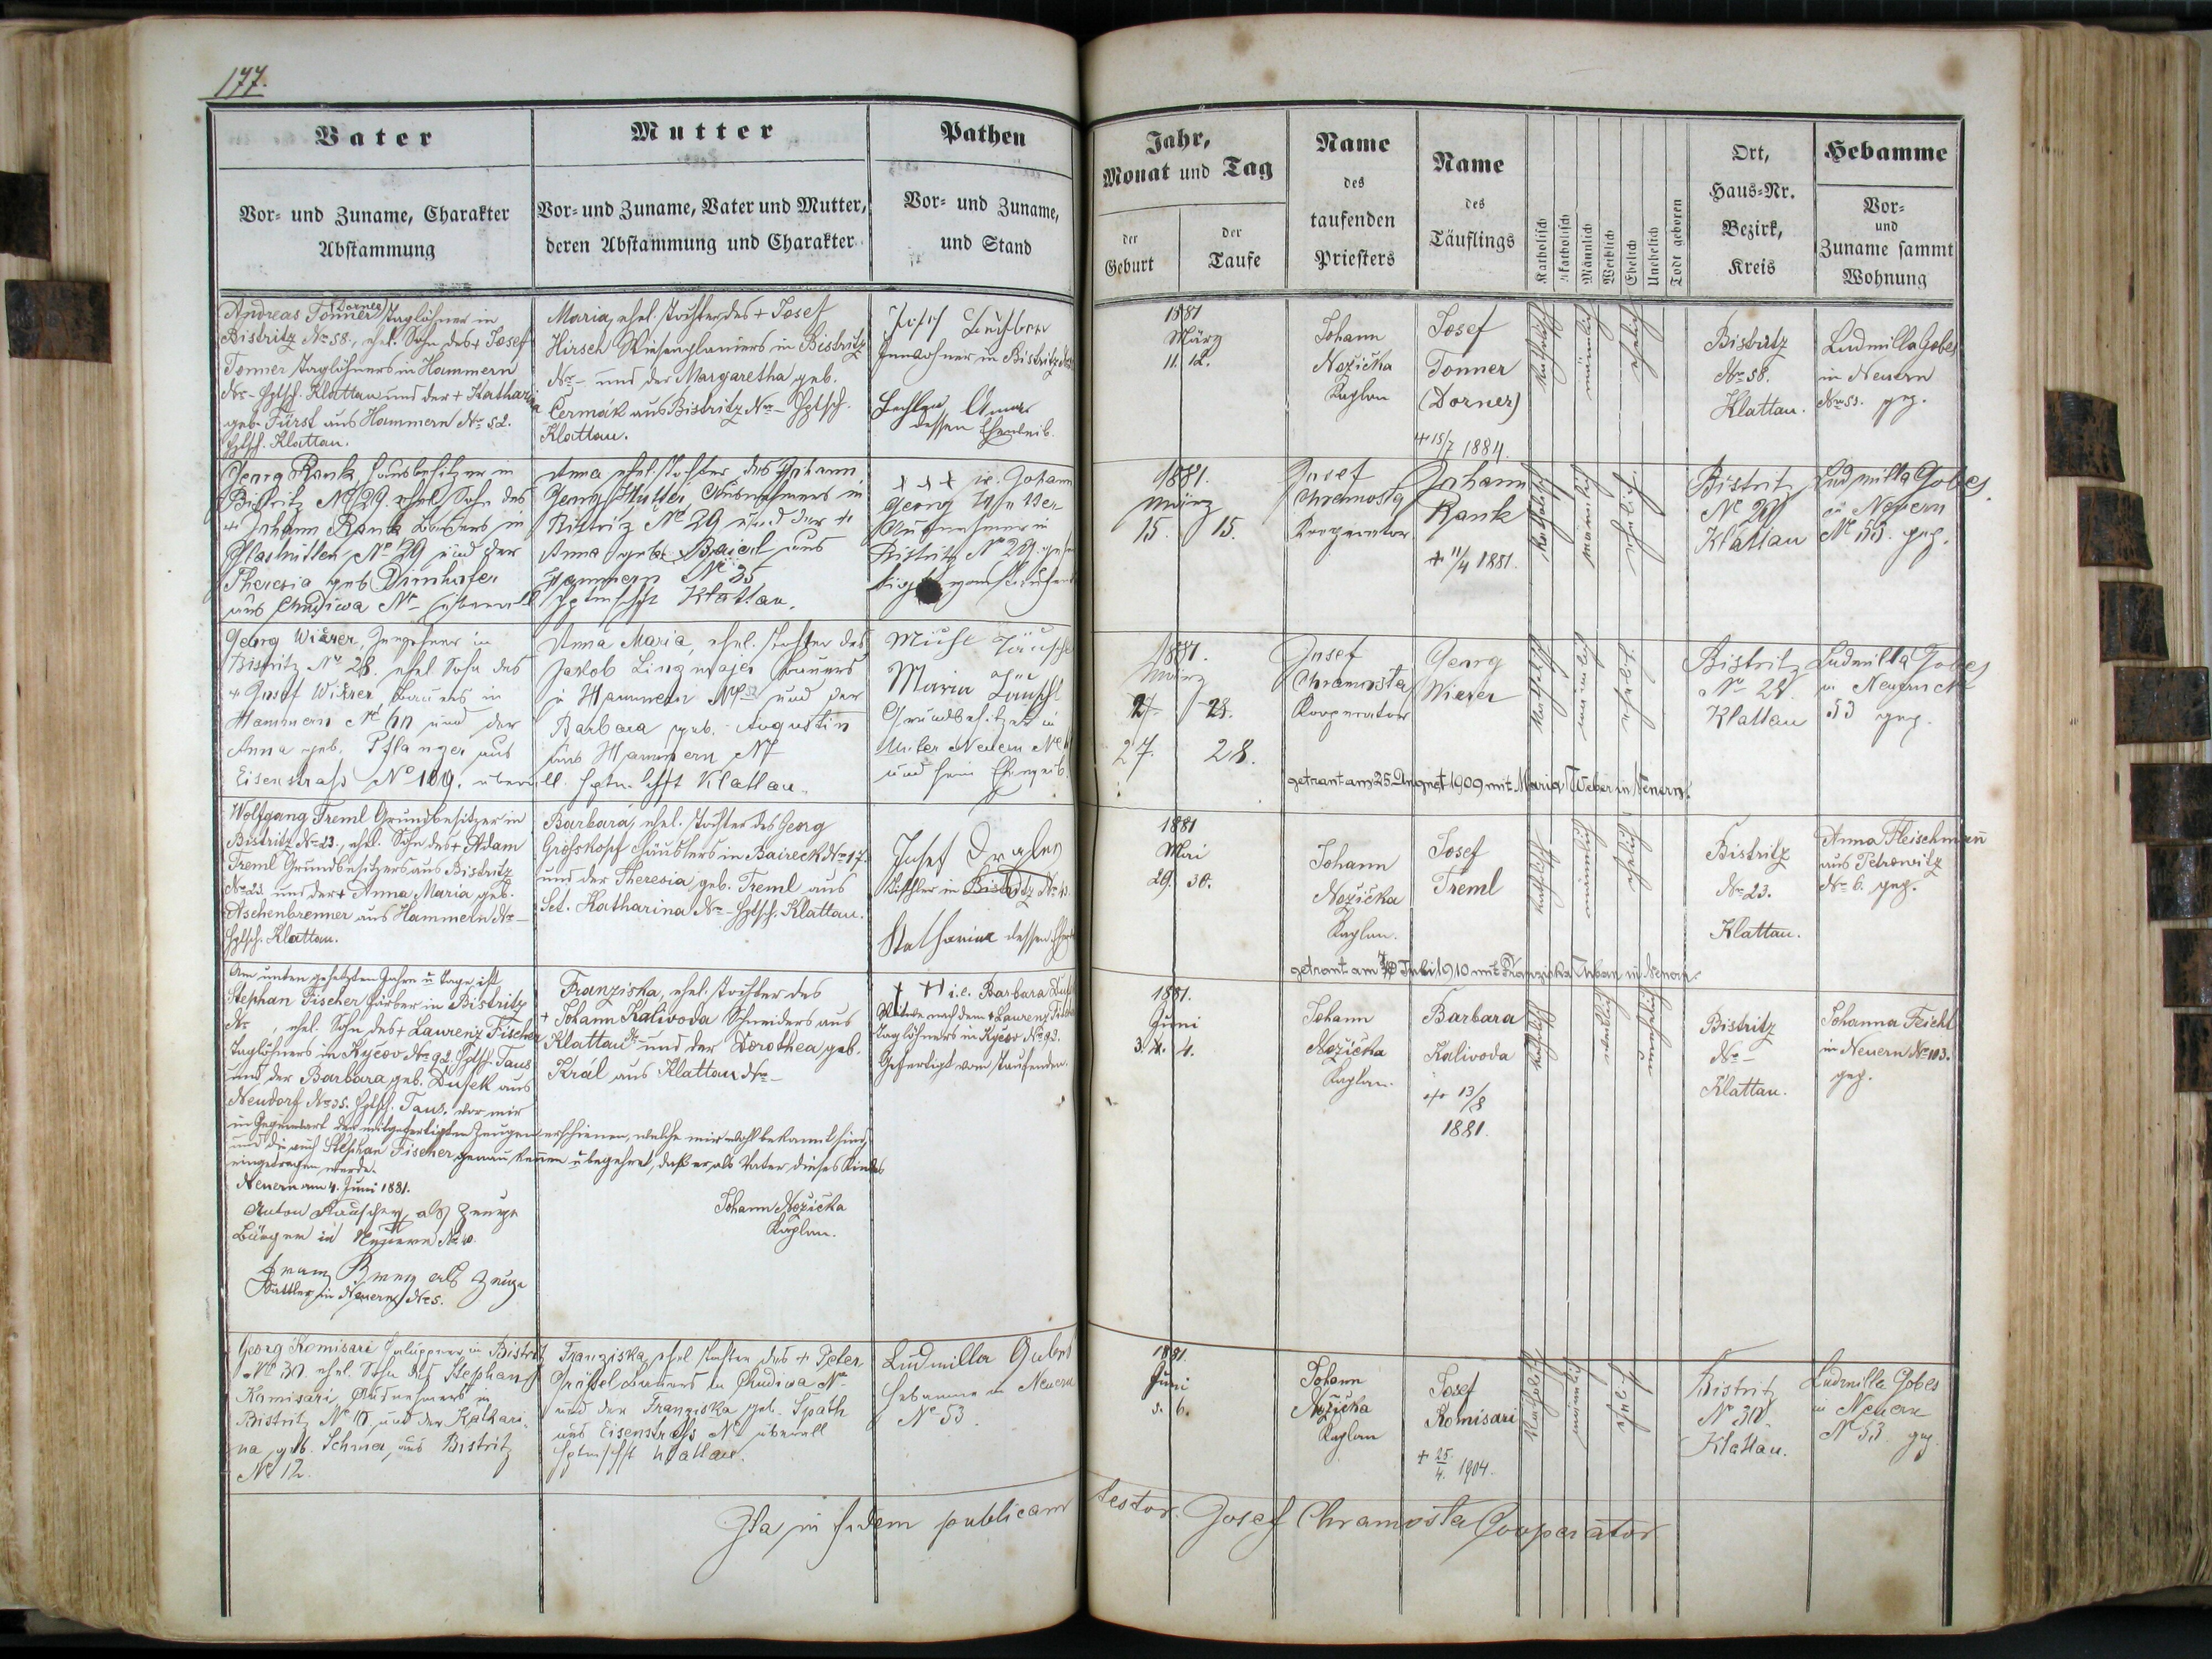 177.
Vater
Vor- und Zuname, Charakter
Abstammung
Mutter
Vor- und Zuname, Vater und Mutter,
deren Abstammung und Charakter
Pathen
Vor- und Zuname,
und Stand
Andreas Tonner (Dorner) Taglöhner in
Bistritz No 58., ehel. Sohn des + Josef
Tonner Taglöhners in Hammern
No - Hptsch. Klattau und der + Katharina
geb. Fürst aus Hammern No 52.
Hptsch. Klattau.
Maria, ehel. Tochter des + Josef
Hirsch Wiesenplaniers in Bistritz
No - und der Margaretha geb.
Čermák aus Bistritz No - Hptsch.
Klattau.
Josef
Inwohner in Bistritz
dessen Eheweib.
Georg Rank, Hausbesitzer in
Bistritz No 29. ehel. Sohn des
+ Johann Rank Bauers in
Glashütten No 29 und der
Theresia geb. Dimhofer
aus Chudiwa No - überall
Anna ehel. Tochter des Johann
Georg Ausnehmers in
Bistritz No 29 und der +
Anna geb. aus
Hammern No 35
Hptmschft Klattau.
+++ ie. Johann
Georg
Ausnehmer in
Bistritz No 29.
vom Taufenden
Georg Wierer, in
Bistritz No 28. ehel. Sohn des
+ Josef Wierer, Bauers in
Hammern No und der
Anna geb. Pflanzer aus
Eisenstrass No 109. überall
Anna Maria, ehel. Tochter des
Jakob Linzmajer Bauers
in Hammern No und der
Barbara geb. Augustin
aus Hammern No
Hptm. schft Klattau.
Maria
Grundbesitzer in
Unter Neuern No
und sein Eheweib.
Wolfgang Treml Grundbesitzer in
Bistritz No 23., ehel. Sohn des + Adam
Treml Grundbesitzers aus Bistritz
No 23. und der + Anna Maria geb.
Aschenbrenner aus Hammern No -
Hptsch. Klattau.
Barbara, ehel. Tochter des Georg
Großkopf Häuslers in Baireck No 17.
und der Theresia, geb. Treml aus
Sct. Katharina No - Hptsch. Klattau.
Josef
Tischler in Bistritz No
Katharina dessen
Am unten gesetzten Jahre u Tage ist
Stephan Fischer Färber in Bistritz
No , ehel. Sohn des + Laurenz Fischer
Taglöhners in Kyčov No 92. Hptsch. Taus
und der Barbara, geb. Dušek aus
Neudorf No 35. Hptsch. Taus. vor mir
in Gegenwart der mitgefertigten Zeugen erschienen, welche mir wohl bekannt sind,
und die auch Stephan Fischer genau kennen u begehret, daß er als Vater dieses Kindes
eingetragen werde.
Neuern am 4. Juni 1881.
Anton Rauscher, als Zeuge
Bürger in Neuern No 40.
Johann Nožička
Kaplan.
Franz als Zeuge
Sattler in Neuern No 5.
Franziska, ehel. Tochter des
+ Johann Kalivoda Schneiders aus
Klattau No - und der Dorothea geb.
Král aus Klattau No -
+++ i.e. Barbara
Witwe nach dem + Laurenz
Taglöhners in Kyčov No 92.
Gefertigt vom Taufenden.
Georg Komisari Chaluppner in Bistritz
No 30. ehel. Sohn des Stephan
Komisari, Ausnehmers in
Bistritz No 10, und der Kathari-
na geb. aus Bistritz
No 12.
Franziska, ehel. Tochter des + Peter
Bauers in Chudiwa No -
und der Franziska geb. Späth
aus Eisenstrass No überall
Hptmschft Klattau.
Ludmilla Gobes
Hebamme in Neuern
No 53.
Ita in fidem publicam
Jahr,
Monat und Tag
der
Geburt
der
Taufe
Name
des
taufenden
Priesters
Name
des
Täuflings
Katholisch
Akatholisch
Männlich
Weiblich
Ehelich
Unehelich
Todt geboren
Ort,
Haus-Nr.
Bezirk,
Kreis
Hebamme
Vor-
und
Zuname sammt
Wohnung
1881
März
11. 12.
Johann
Nožička
Kaplan
Josef
Tonner
(Dorner)
+ 15/7 1884.
katholisch
männlich
ehelich
Bistritz
No 58.
Klattau.
Ludmilla Gobes
in Neuern
No 53. gep.
1881.
März
15. 15.
Josef
Chramosta
Kooperator
Johann
Rank
+ 11/4 1881.
katholisch
männlich
ehelich.
Bistritz
No 29
Klattau
Ludmilla Gobes
in Neuern
No 53. gep.
1881.
März
27 28.
27. 28.
Josef
Chramosta
Kooperator
Georg
Wierer
katholisch
männlich
ehelich.
Bistritz
No 28.
Klattau
Ludmilla Gobes
in Neuern No
53 gep.
getraut am 25. August 1909 mit Maria Weber in Neuern.
1881
Mai
29. 30.
Johann
Nožička
Kaplan.
Josef
Treml
katholisch
männlich
ehelich
Bistritz
No 23.
Klattau.
Anna Fleischmann
aus Petrowitz
No 6. gep.
getraut am Juli 1910 mit Franziska Urban in Neuern.
1881.
Juni
3. 4.
Johann
Nožička
Kaplan.
Barbara
Kalivoda
+ 13/8
1881.
katholisch
weiblich
unehelich
Bistritz
No -
Klattau.
Johanna Feicht
in Neuern No 103.
gep.
1881.
Juni
5. 6.
Johann
Nožička
Kaplan
Josef
Komisari
+ 25/4. 1904.
katholisch
männlich
ehelich
Bistritz
No 30
Klattau.
Ludmilla Gobes
in Neuern
No 53. gep.
testor. Josef Chramosta Cooperator